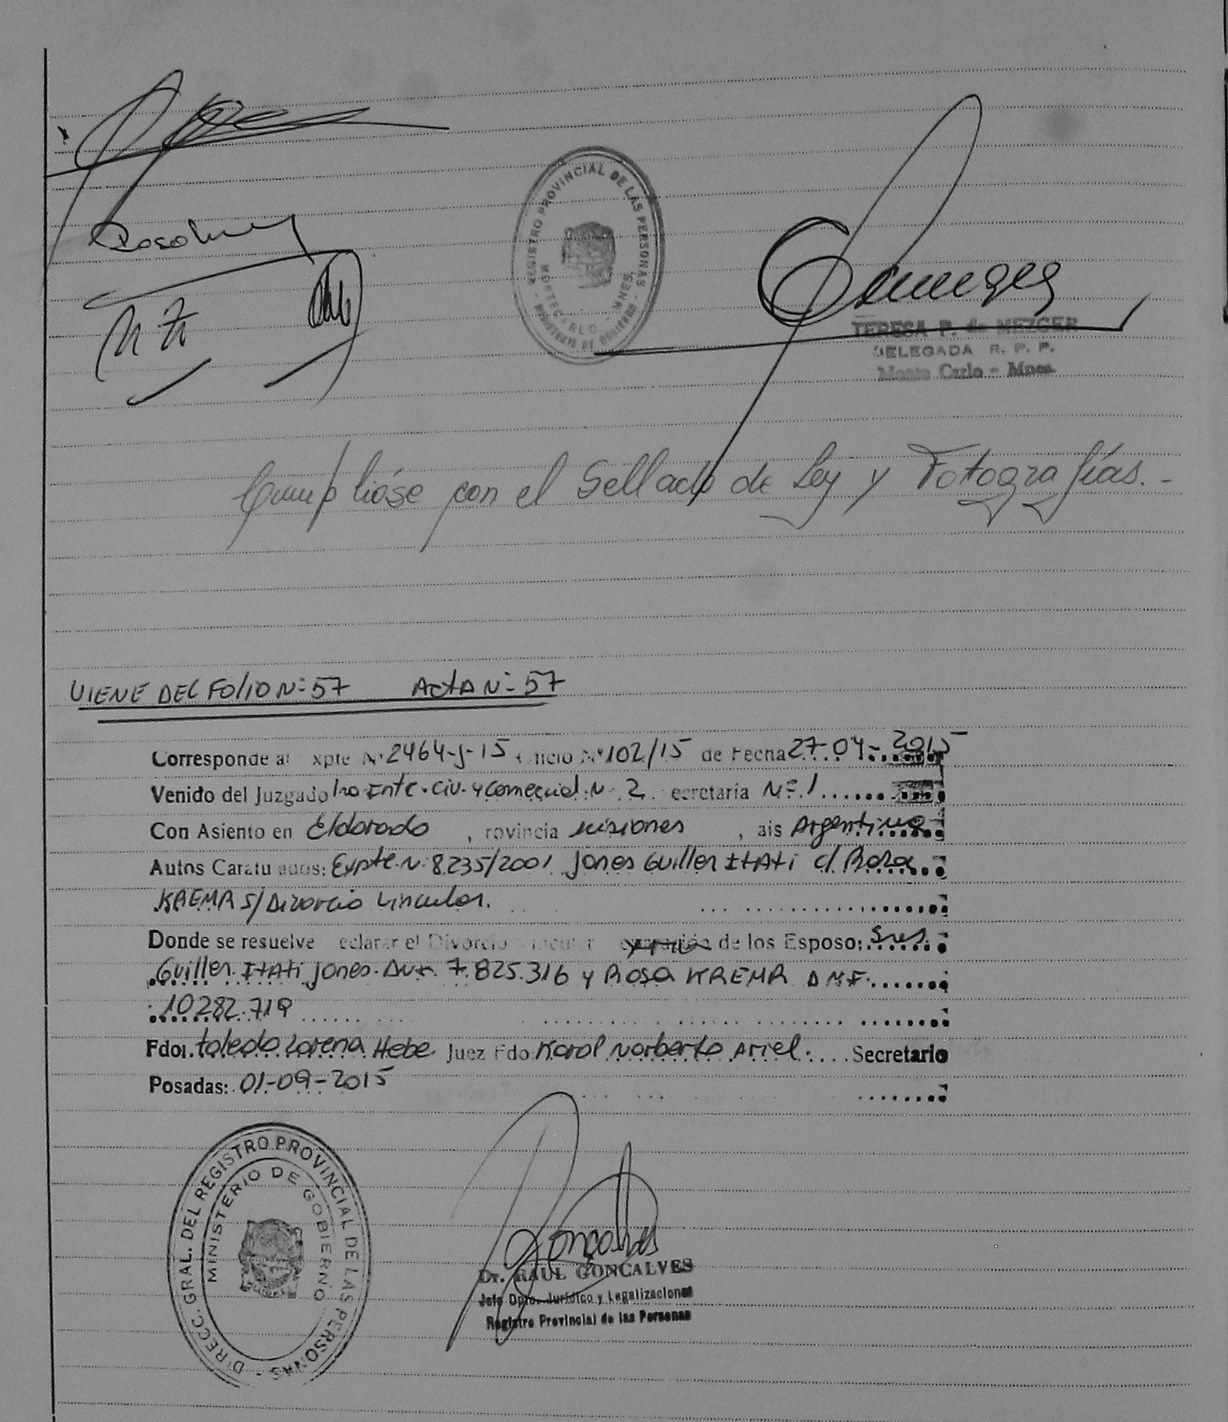 REGISTRO PROVINCIAL DE LAS PERSONAS
MONTECARLO - MNES.
MINISTERIO DE GOBIERNO
TERESA P. de MEZGER
DELEGADA R. P. P.
Monte Carlo - Mnes.
Cumplióse con el Sellado de Ley y Fotografías.-
VIENE DEL FOLIO Nº 57 ACTA Nº 57
Corresponde al Expte Nº 2464-J-15 Oficio Nº 102/15 de Fecha 27-04-2015
Venido del Juzgado 1ro Inte. Civ. y Comercial Nº 2 ecretaría Nº 1
Con Asiento en Eldorado, rovincia Misiones, ais Argentina
Autos Caratu ados: Expte. Nº 8235/2001 Jones Guiller Itati c/ Rosa
KREMR s/ Divorcio Vincular.
Donde se resuelve eclarar el Divorcio Vincular de los Esposo: Sres
Guiller Itati Jones. 7.825.316 y Rosa KREMR DNI.
10.282.719
Fdo. Toledo Lorena Hebe Juez Fdo Karol Norberto Ariel. Secretario
Posadas: 01-09-2015
DIRECC. GRAL. DEL REGISTRO PROVINCIAL DE LAS PERSONAS
MINISTERIO DE GOBIERNO
Dr. RAUL GONCALVES
Jefe Dpto. Jurídico y Legalizaciones
Registro Provincial de las Personas